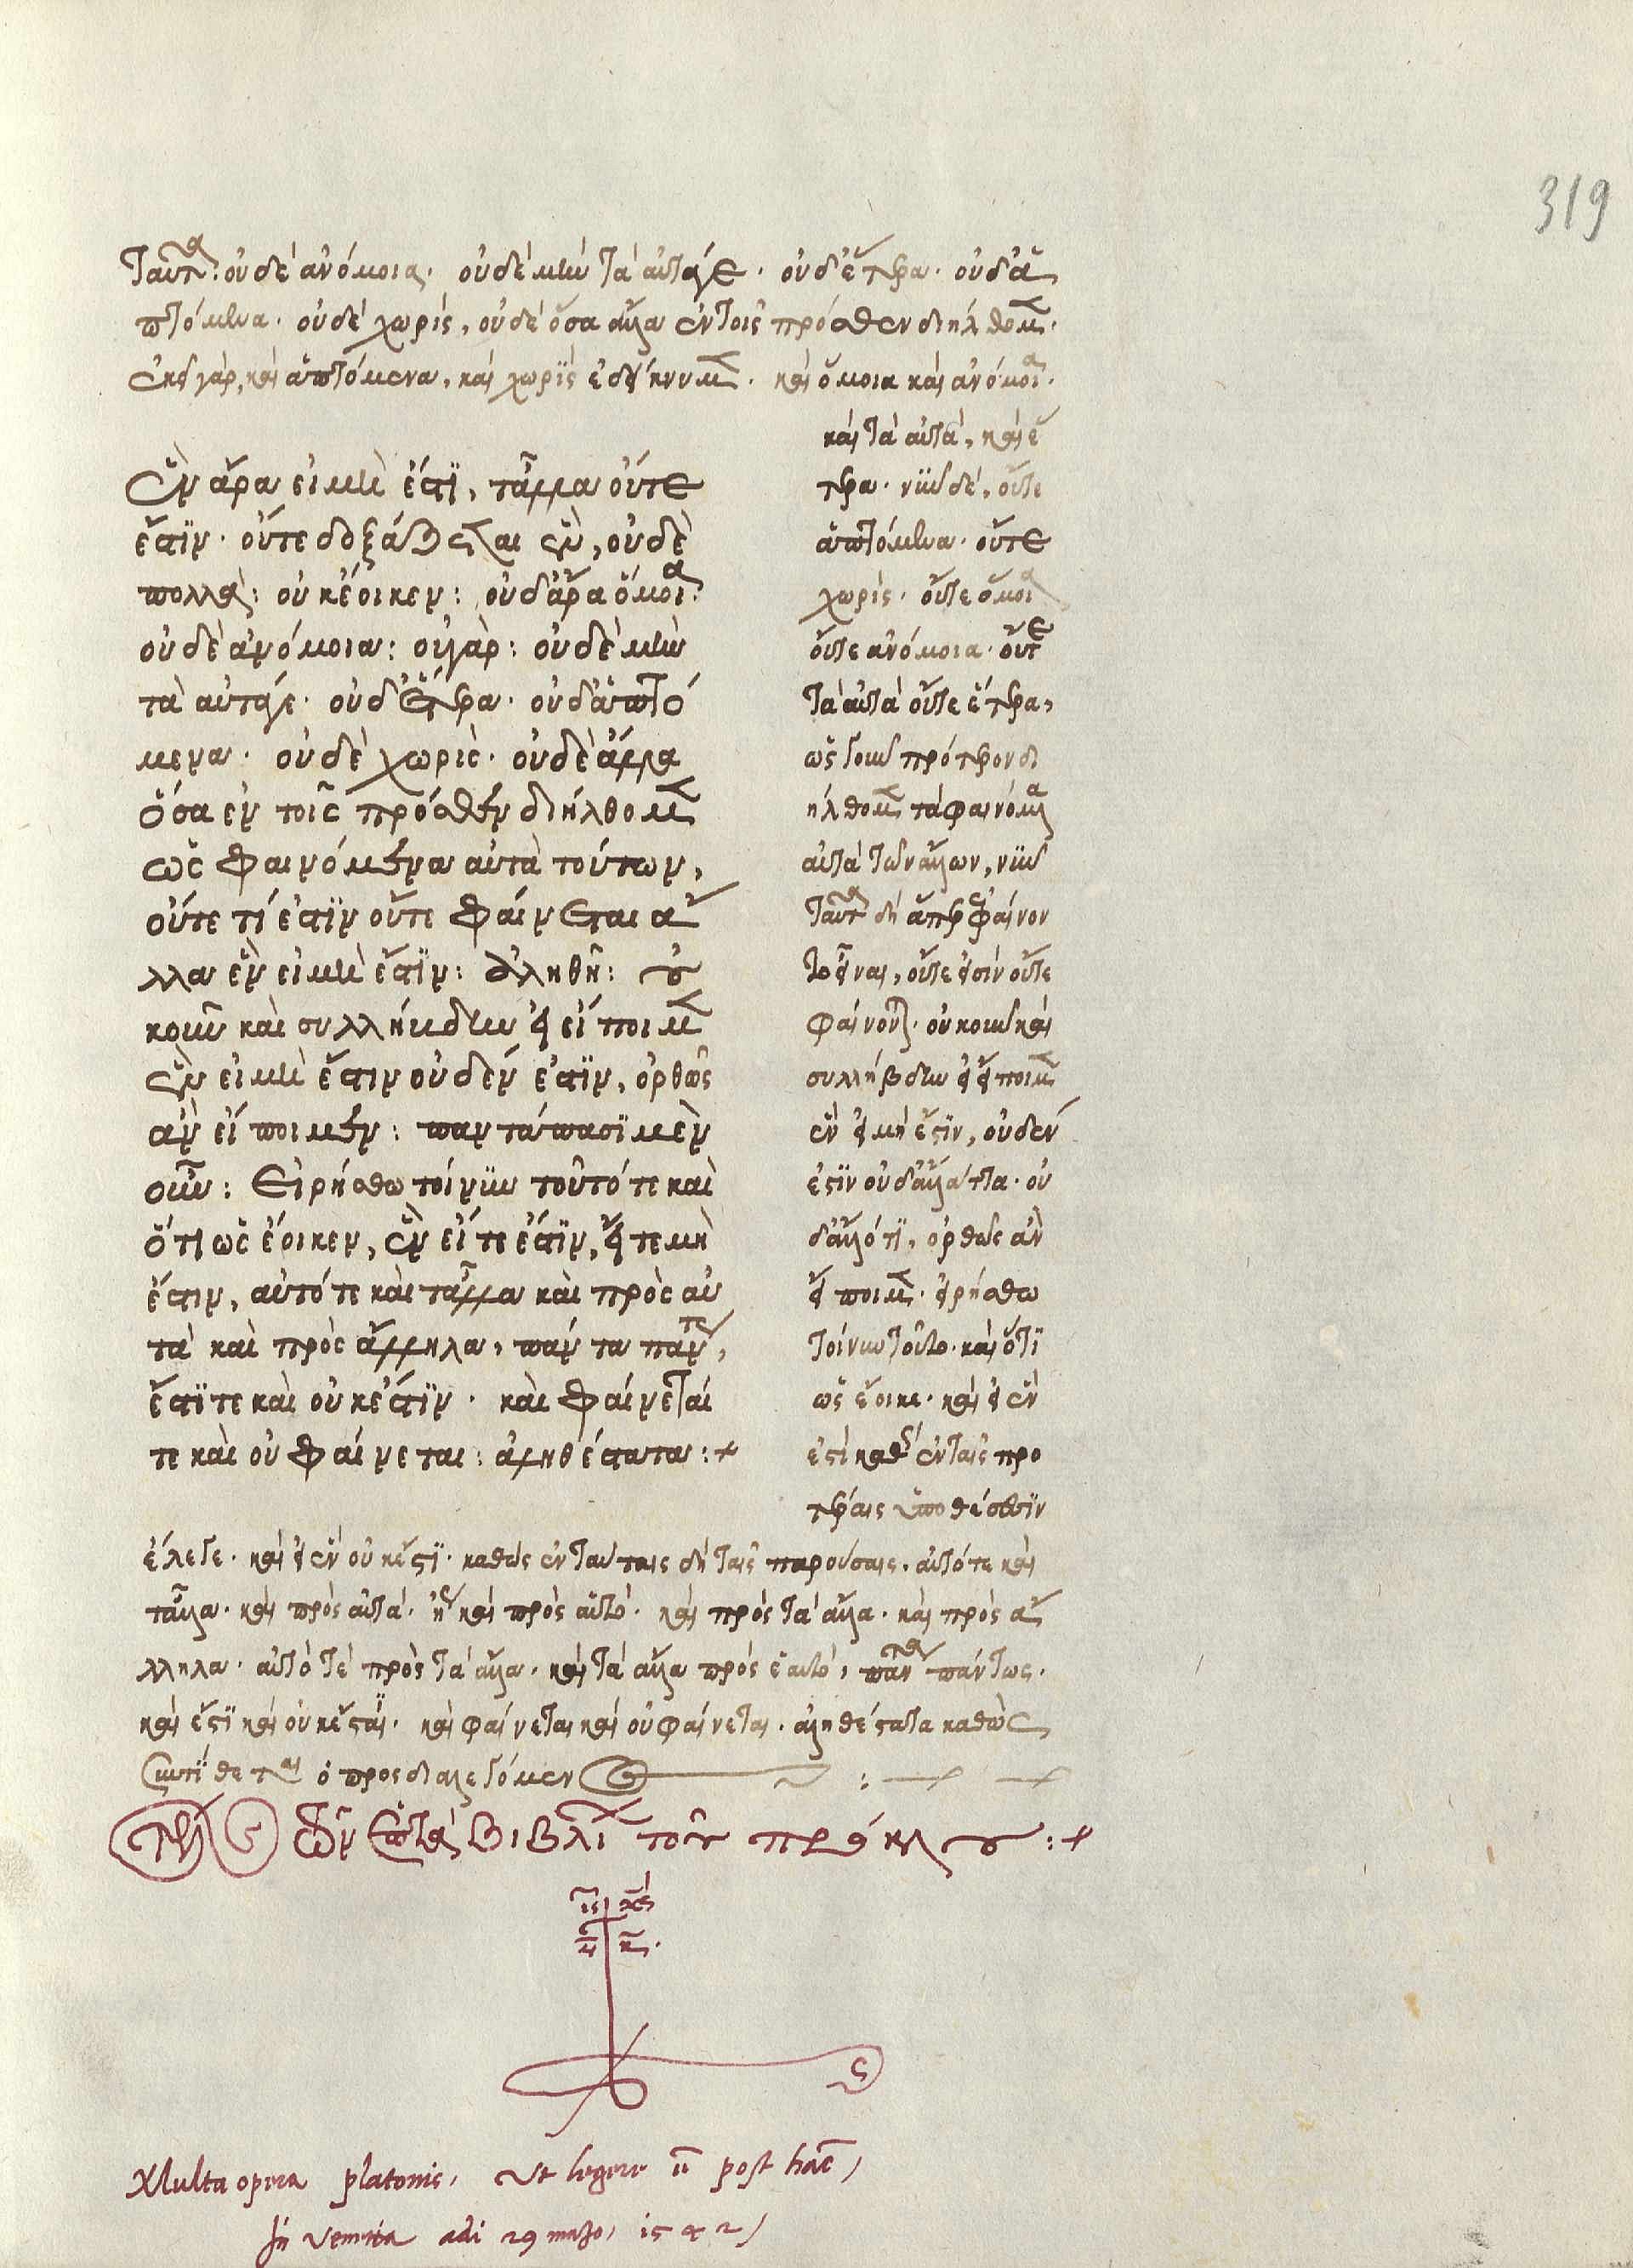 319
ταῦτα· οὐδὲ ἀνόμοια· οὐδὲ μὴν τὰ αὐτά γε· οὐδ' ἕτερα· οὐδ' ἁ
πτόμενα· οὐδὲ χωρὶς, οὐδὲ ὅσα ἄλλα ἐν τοῖς πρόσθεν διήλθομεν·
ἐκεῖ γὰρ, καὶ ἁπτόμενα, καὶ χωρὶς ἐδείκνυμεν· καὶ ὅμοια καὶ ἀνόμοια·
καὶ τὰ αὐτὰ, καὶ ἕ
τερα· νῦν δὲ, οὔτε
ἁπτόμενα· οὔτε
χωρὶς· οὔτε ὅμοια
οὔτε ἀνόμοια· οὔτε
τὰ αὐτὰ οὔτε ἕτερα,
ὡς γοῦν πρότερον δι
ήλθομεν τὰ φαινόμενα
αὐτὰ τῶν ἄλλων, νῦν
ταῦτα δὴ ἅπερ ἐφαίνον
το εἶναι, οὔτε εἰσὶν οὔτε
φαίνονται· οὐκοῦν καὶ
συλλήβδην εἰ εἴποιμεν
ἓν εἰ μή ἐστιν, οὐδέν
ἐστιν οὐδ' ἄλλ' ἄττα· οὐ
δ' ἄλλό τι, ὀρθῶς ἂν
εἴποιμεν· εἰρήσθω
τοίνυν τοῦτο· καὶ ὅτι
ὡς ἔοικε· καὶ εἰ ἓν
ἐστὶ καθὼς ἐν ταῖς προ
τέραις ὑποθέσεσιν
ἓν ἄρα εἰ μὴ ἔστι, τἆλλα οὔτε
ἔστιν· οὔτε δοξάζεται ἓν, οὐδὲ
πολλά: οὐκ ἔοικεν: οὐδ' ἄρα ὅμοια
οὐδὲ ἀνόμοια: οὐ γὰρ: οὐδὲ μὴν
τὰ αὐτά γε· οὐδ' ἕτερα· οὐδ' ἁπτό
μενα· οὐδὲ χωρὶς· οὐδὲ ἄλλα
ὅσα ἐν τοῖς πρόσθεν διήλθομεν
ὡς φαινόμενα αὐτὰ τούτων,
οὔτε τί ἐστιν οὔτε φαίνεται ἄ
λλα ἓν εἰ μὴ ἔστιν: ἀληθῆ: οὐ
κοῦν καὶ συλλήβδην εἰ εἴποιμεν
ἓν εἰ μὴ ἔστιν οὐδέν ἐστιν, ὀρθῶς
ἂν εἴποιμεν: παντάπασι μὲν
οὖν: Εἰρήσθω τοίνυν τοῦτό τε καὶ
ὅτι ὡς ἔοικεν, ἓν εἴτε ἔστιν, εἴτε μὴ
ἔστιν, αὐτό τε καὶ τἆλλα καὶ πρὸς αὐ
τὰ καὶ πρὸς ἄλληλα, πάντα πάντως,
ἔστι τε καὶ οὐκ ἔστιν· καὶ φαίνεταί
τε καὶ οὐ φαίνεται: ἀληθέστατα:+
ἔλεγε· καὶ εἰ ἓν οὐκ ἔστι· καθὼς ἐν ταύταις δὴ ταῖς παρούσαις, αὐτό τε καὶ
τἆλλα· καὶ πρὸς αὐτὰ· ἢ καὶ πρὸς αὐτό· καὶ πρὸς τὰ ἄλλα· καὶ πρὸς ἄ
λληλα· αὐτό τε πρὸς τὰ ἄλλα· καὶ τὰ ἄλλα πρὸς ἑαυτό, πάντα πάντως·
καὶ ἔστι καὶ οὐκ ἔστι· καὶ φαίνεται καὶ οὐ φαίνεται· ἀληθέστατα καθὼς
συντίθεται ὁ προσδιαλεγόμενος :
τέλος τῶν ἑπτὰ βιβλίων τοῦ πρόκλου :+
ις χς
ν κ
Multa opera platonis, ut legere post hac
In Venetia adi 29 mazo, 1542